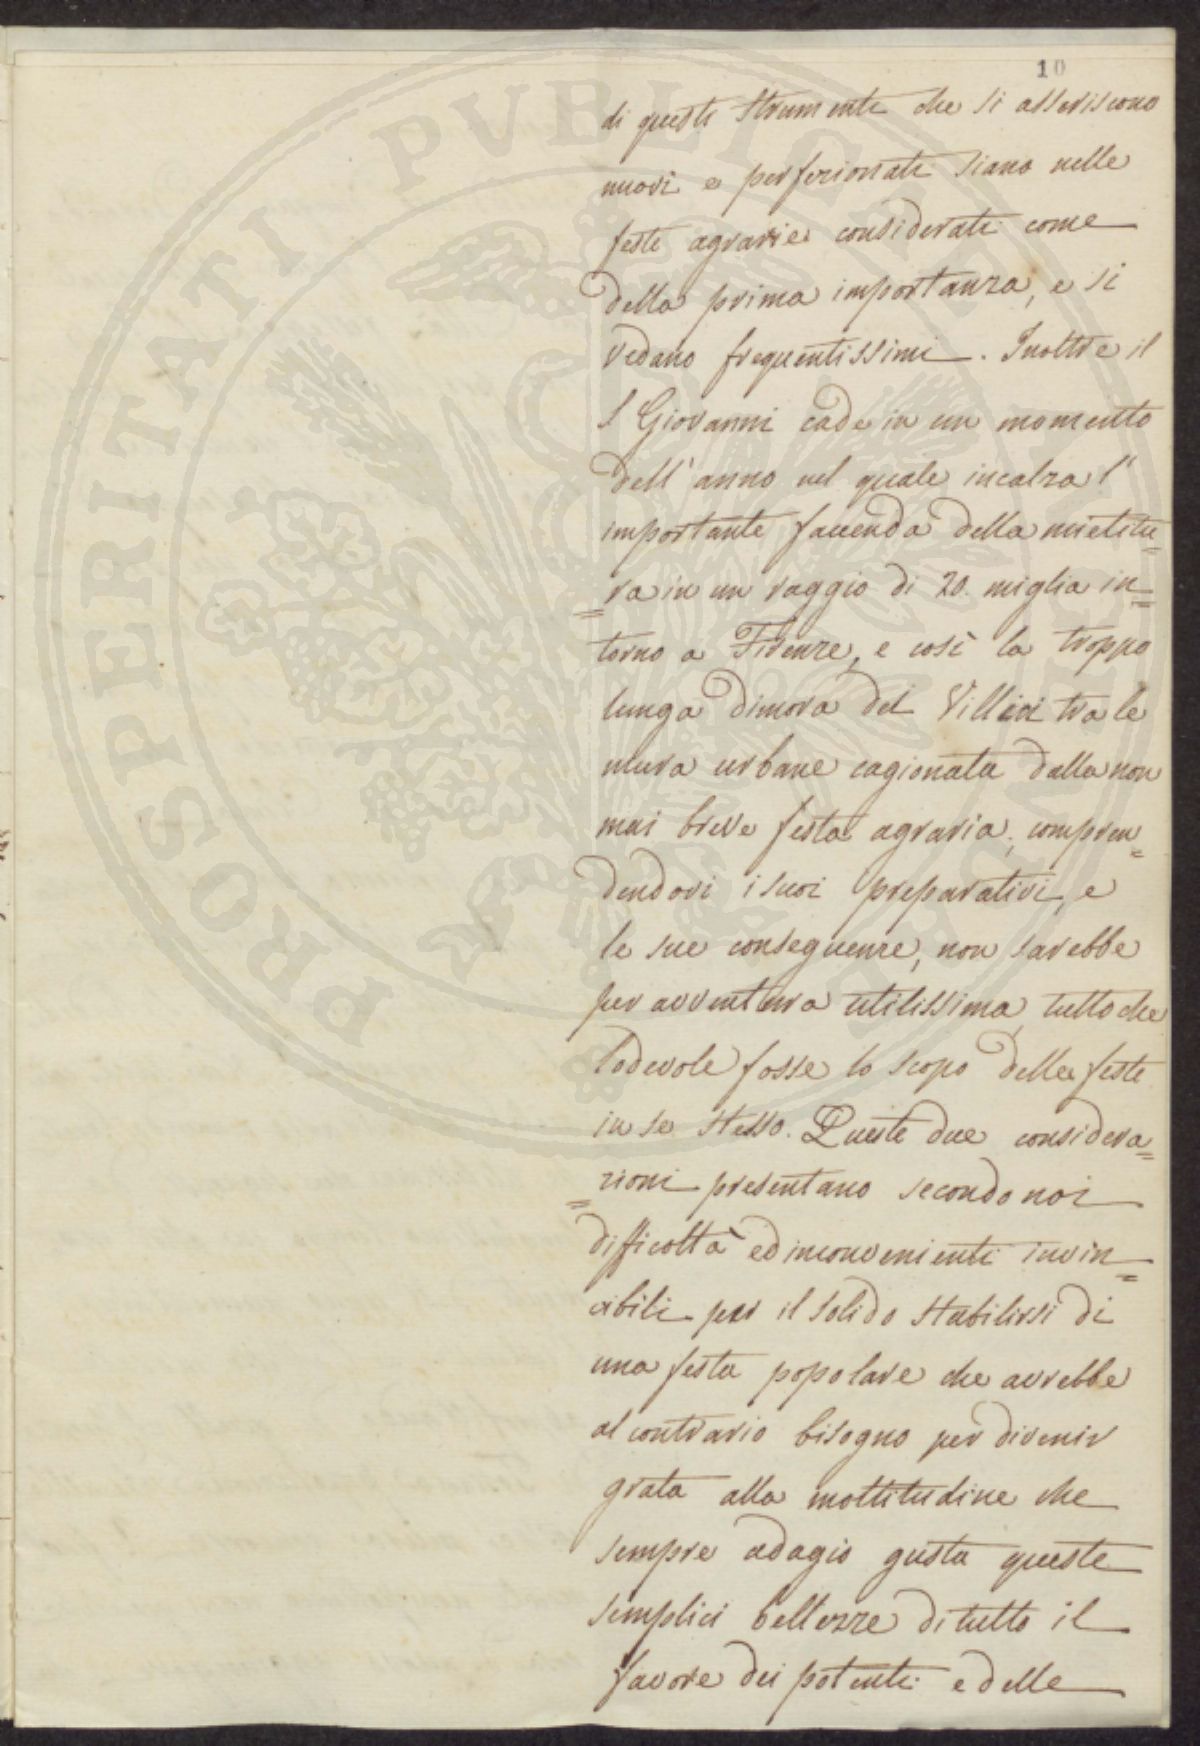 10
di questi strumenti che si asseriscono
nuovi e perfezionati siano nelle
feste agrarie considerati come
della prima importanza, e si
vedano frequentissimi. Inoltre il
S Giovanni cade in un momento
dell'anno nel quale incalza l'
importante faccenda della mietitu=
=ra in un raggio di 20. miglia in=
torno a Firenze, e così la troppo
lunga dimora dei Villici tra le
mura urbane cagionata dalla non
mai breve festa agraria, compren=
dendovi i suoi preparativi, e
le sue conseguenze, non sarebbe
per avventura utilissima tutto che
lodevole fosse lo scopo delle feste
in se stesso. Queste due considera=
=zioni presentano secondo noi
difficoltà ed inconvenienti invin=
cibili per il solido stabilirsi di
una festa popolare che avrebbe
al contrario bisogno per divenir
grata alla moltitudine che
sempre adagio gusta queste
semplici bellezze di tutto il
favore dei potenti e delle
PROSPERITATI PVBLICAE AVGENDAE